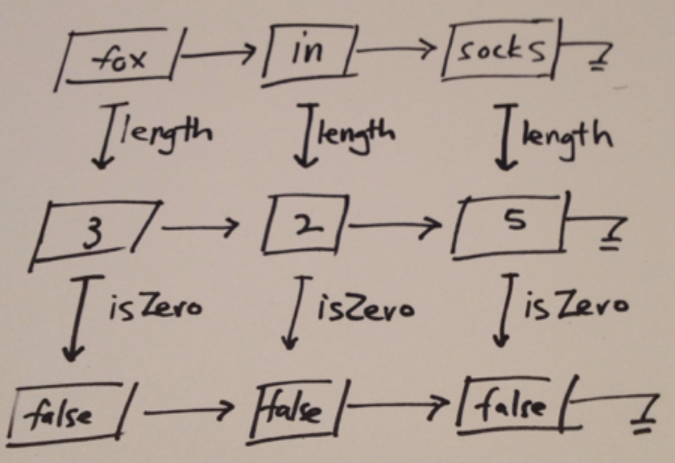 fox in socks
length length length
3 2 5
isZero isZero isZero
false false false